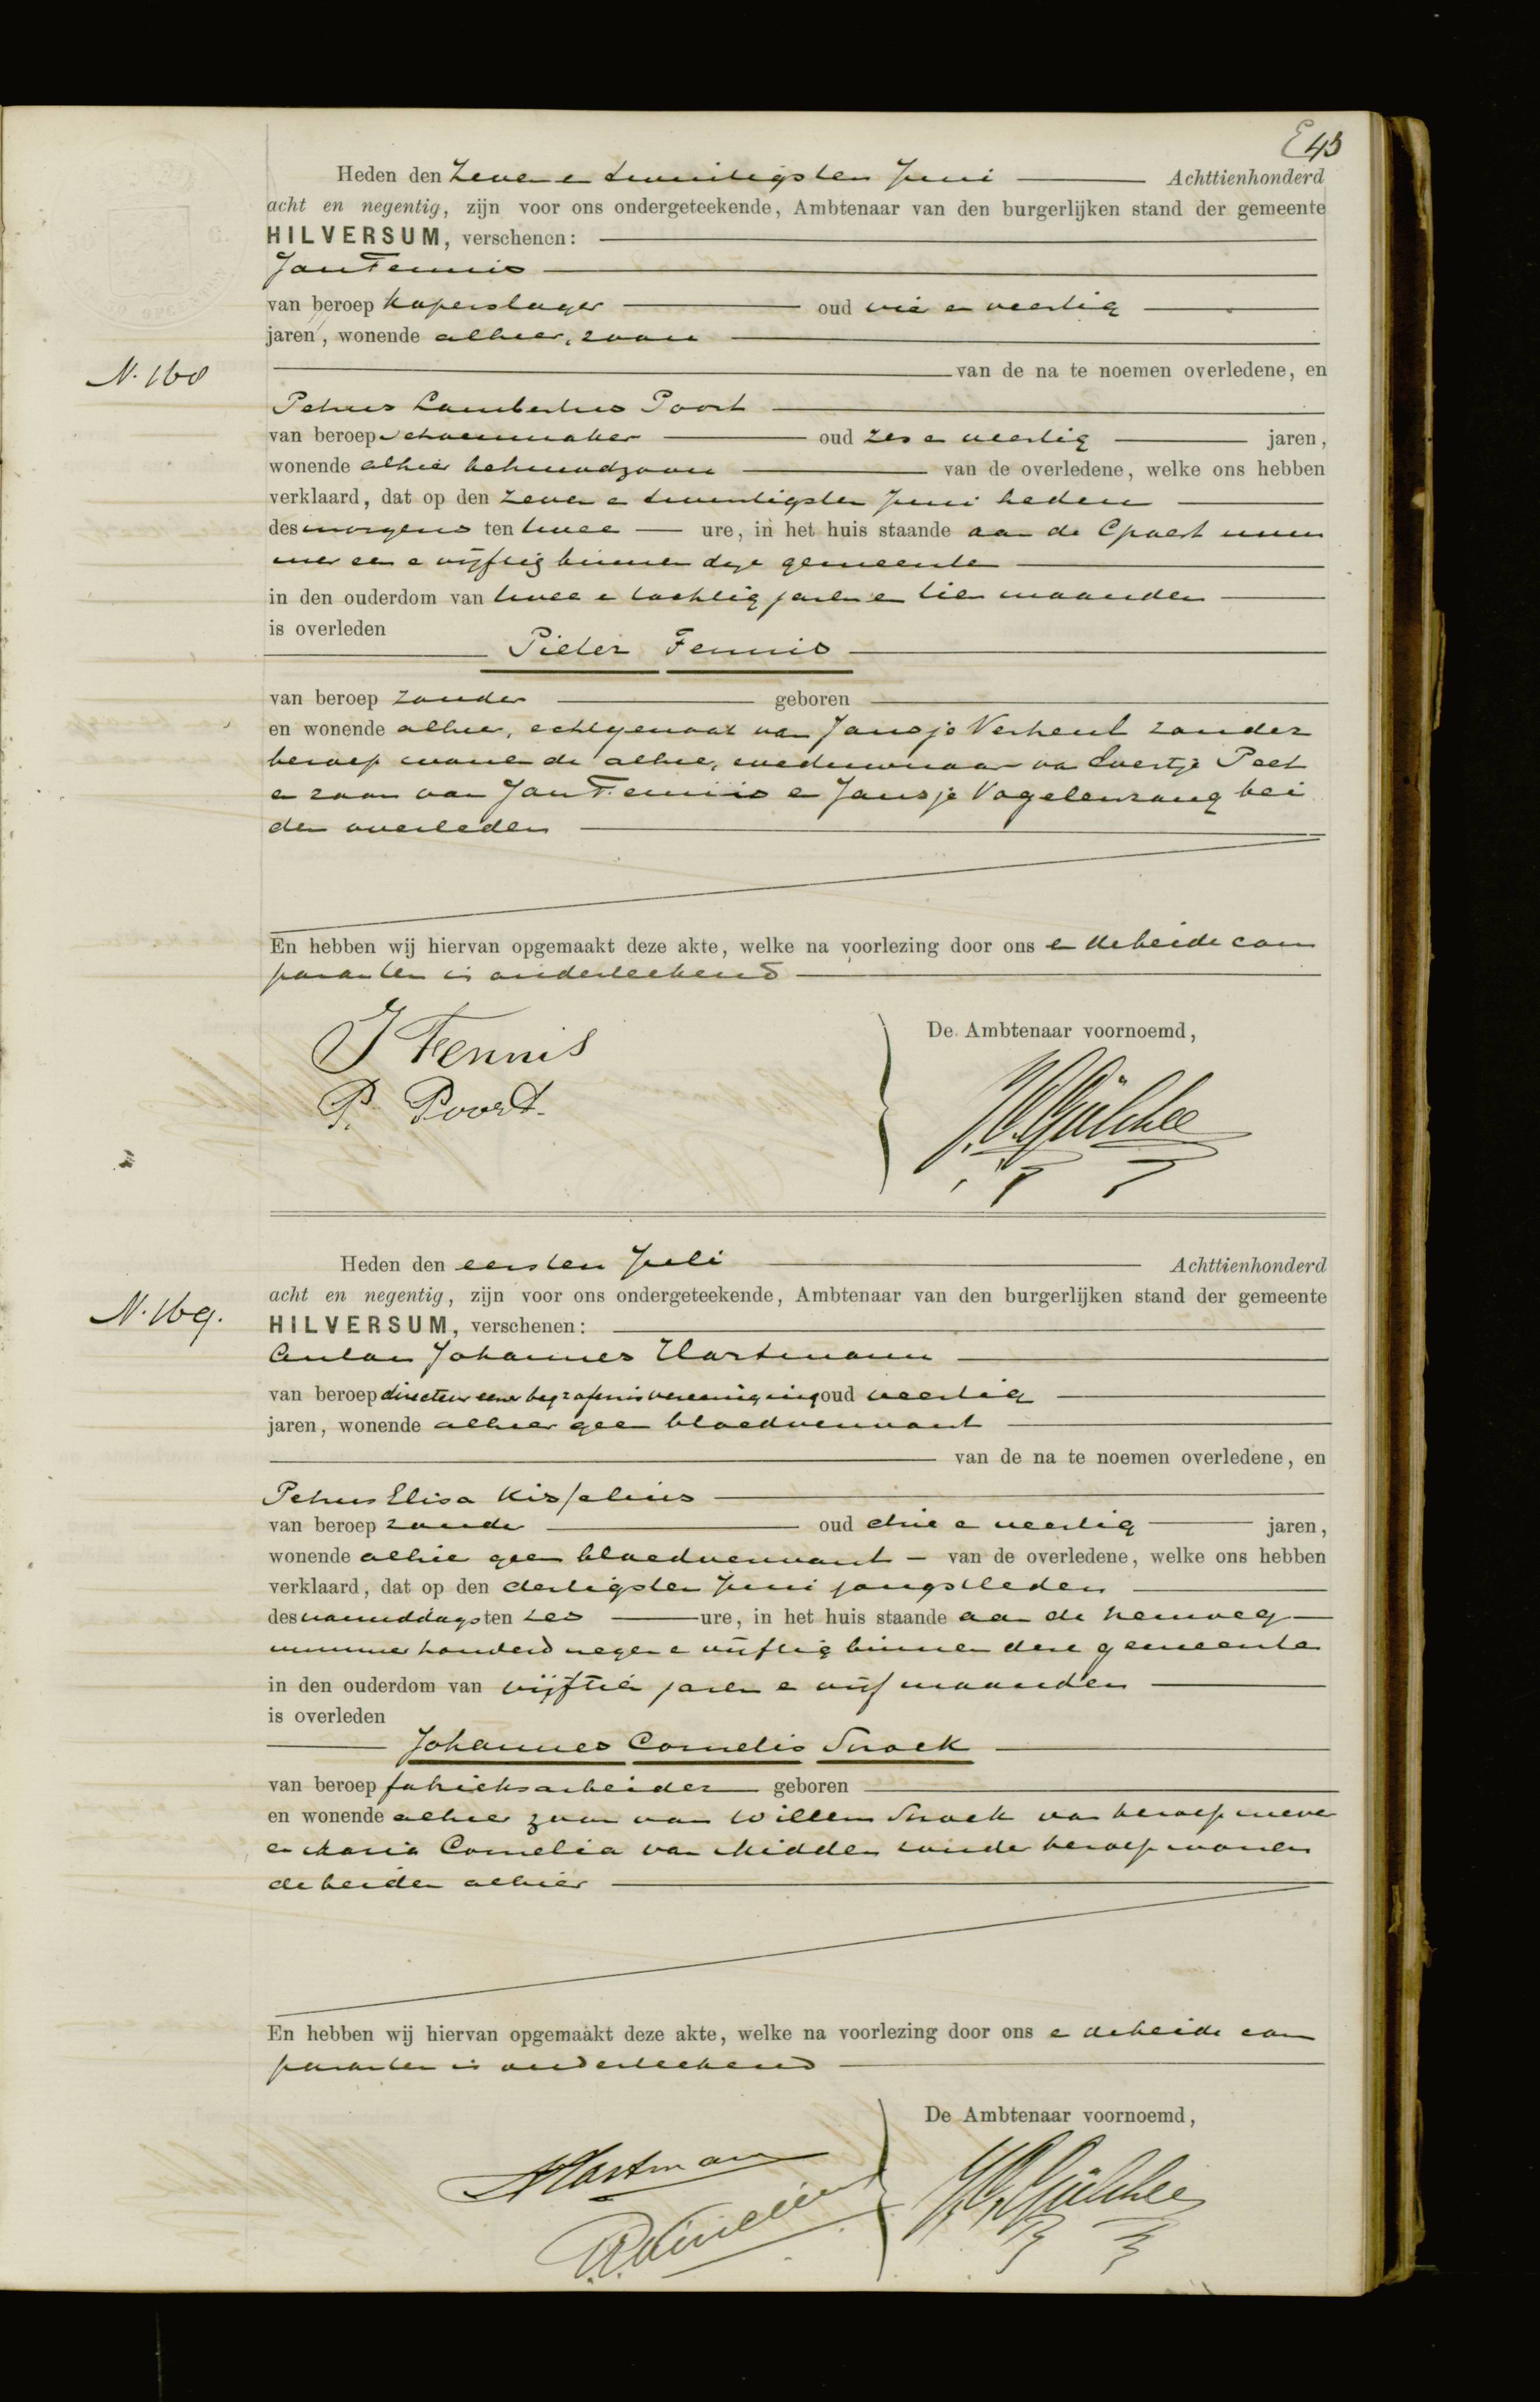 E 43
Heden den Zeven en twintigsten Juni Achttienhonderd
acht en negentig, zijn voor ons ondergeteekende, Ambtenaar van den burgerlijken stand der gemeente
HILVERSUM, verschenen:
Jan Fennis
van beroep koperslager oud vier en veertig
jaren, wonende alhier, zoon
N. 168
van de na te noemen overledene, en
Petrus Lambertus Poort
van beroep schoenmaker oud zes en veertig jaren,
wonende alhier behuwdzoon van de overledene, welke ons hebben
verklaard, dat op den zeven en twintigsten Juni heden
des morgens ten twee ure, in het huis staande aan de Groest num
mer een en vijftig binnen deze gemeente
in den ouderdom van twee en tachtig jaren en tien maanden
is overleden
Pieter Fennis
van beroep zonder geboren
en wonende alhier, echtgenoot van Jansje Verheul zonder
beroep wonende alhier, weduwnaar van Evertje Peet
en zoon van Jan Fennis en Jansje Vogelenzang bei
den overleden
En hebben wij hiervan opgemaakt deze akte, welke na voorlezing door ons en de beide com
paranten is onderteekend
De Ambtenaar voornoemd,
J Fennis
P. Poort.
Heden den eersten Juli Achttienhonderd
acht en negentig, zijn voor ons ondergeteekende, Ambtenaar van den burgerlijken stand der gemeente
N. 169.
HILVERSUM, verschenen:
Anton Johannes Hartmann
van beroep directeur eener begrafenisvereeniging oud veertig
jaren, wonende alhier geen bloedverwant
van de na te noemen overledene, en
Petrus Elisa Kisselius
van beroep zonder oud drie en veertig jaren,
wonende alhier geen bloedverwant van de overledene, welke ons hebben
verklaard, dat op den dertigsten Juni jongstleden
des namiddags ten zes ure, in het huis staande aan de
nummer honderd negen en vijftig binnen deze gemeente
in den ouderdom van vijftien jaren en vijf maanden
is overleden
Johannes Cornelis Snoek
van beroep fabrieksarbeider geboren
en wonende alhier zoon van Willem Snoek van beroep wever
en Maria Cornelia van Midden zonder beroep wonen
de beiden alhier
En hebben wij hiervan opgemaakt deze akte, welke na voorlezing door ons en de beide com
paranten is onderteekend
De Ambtenaar voornoemd,
AHartmann